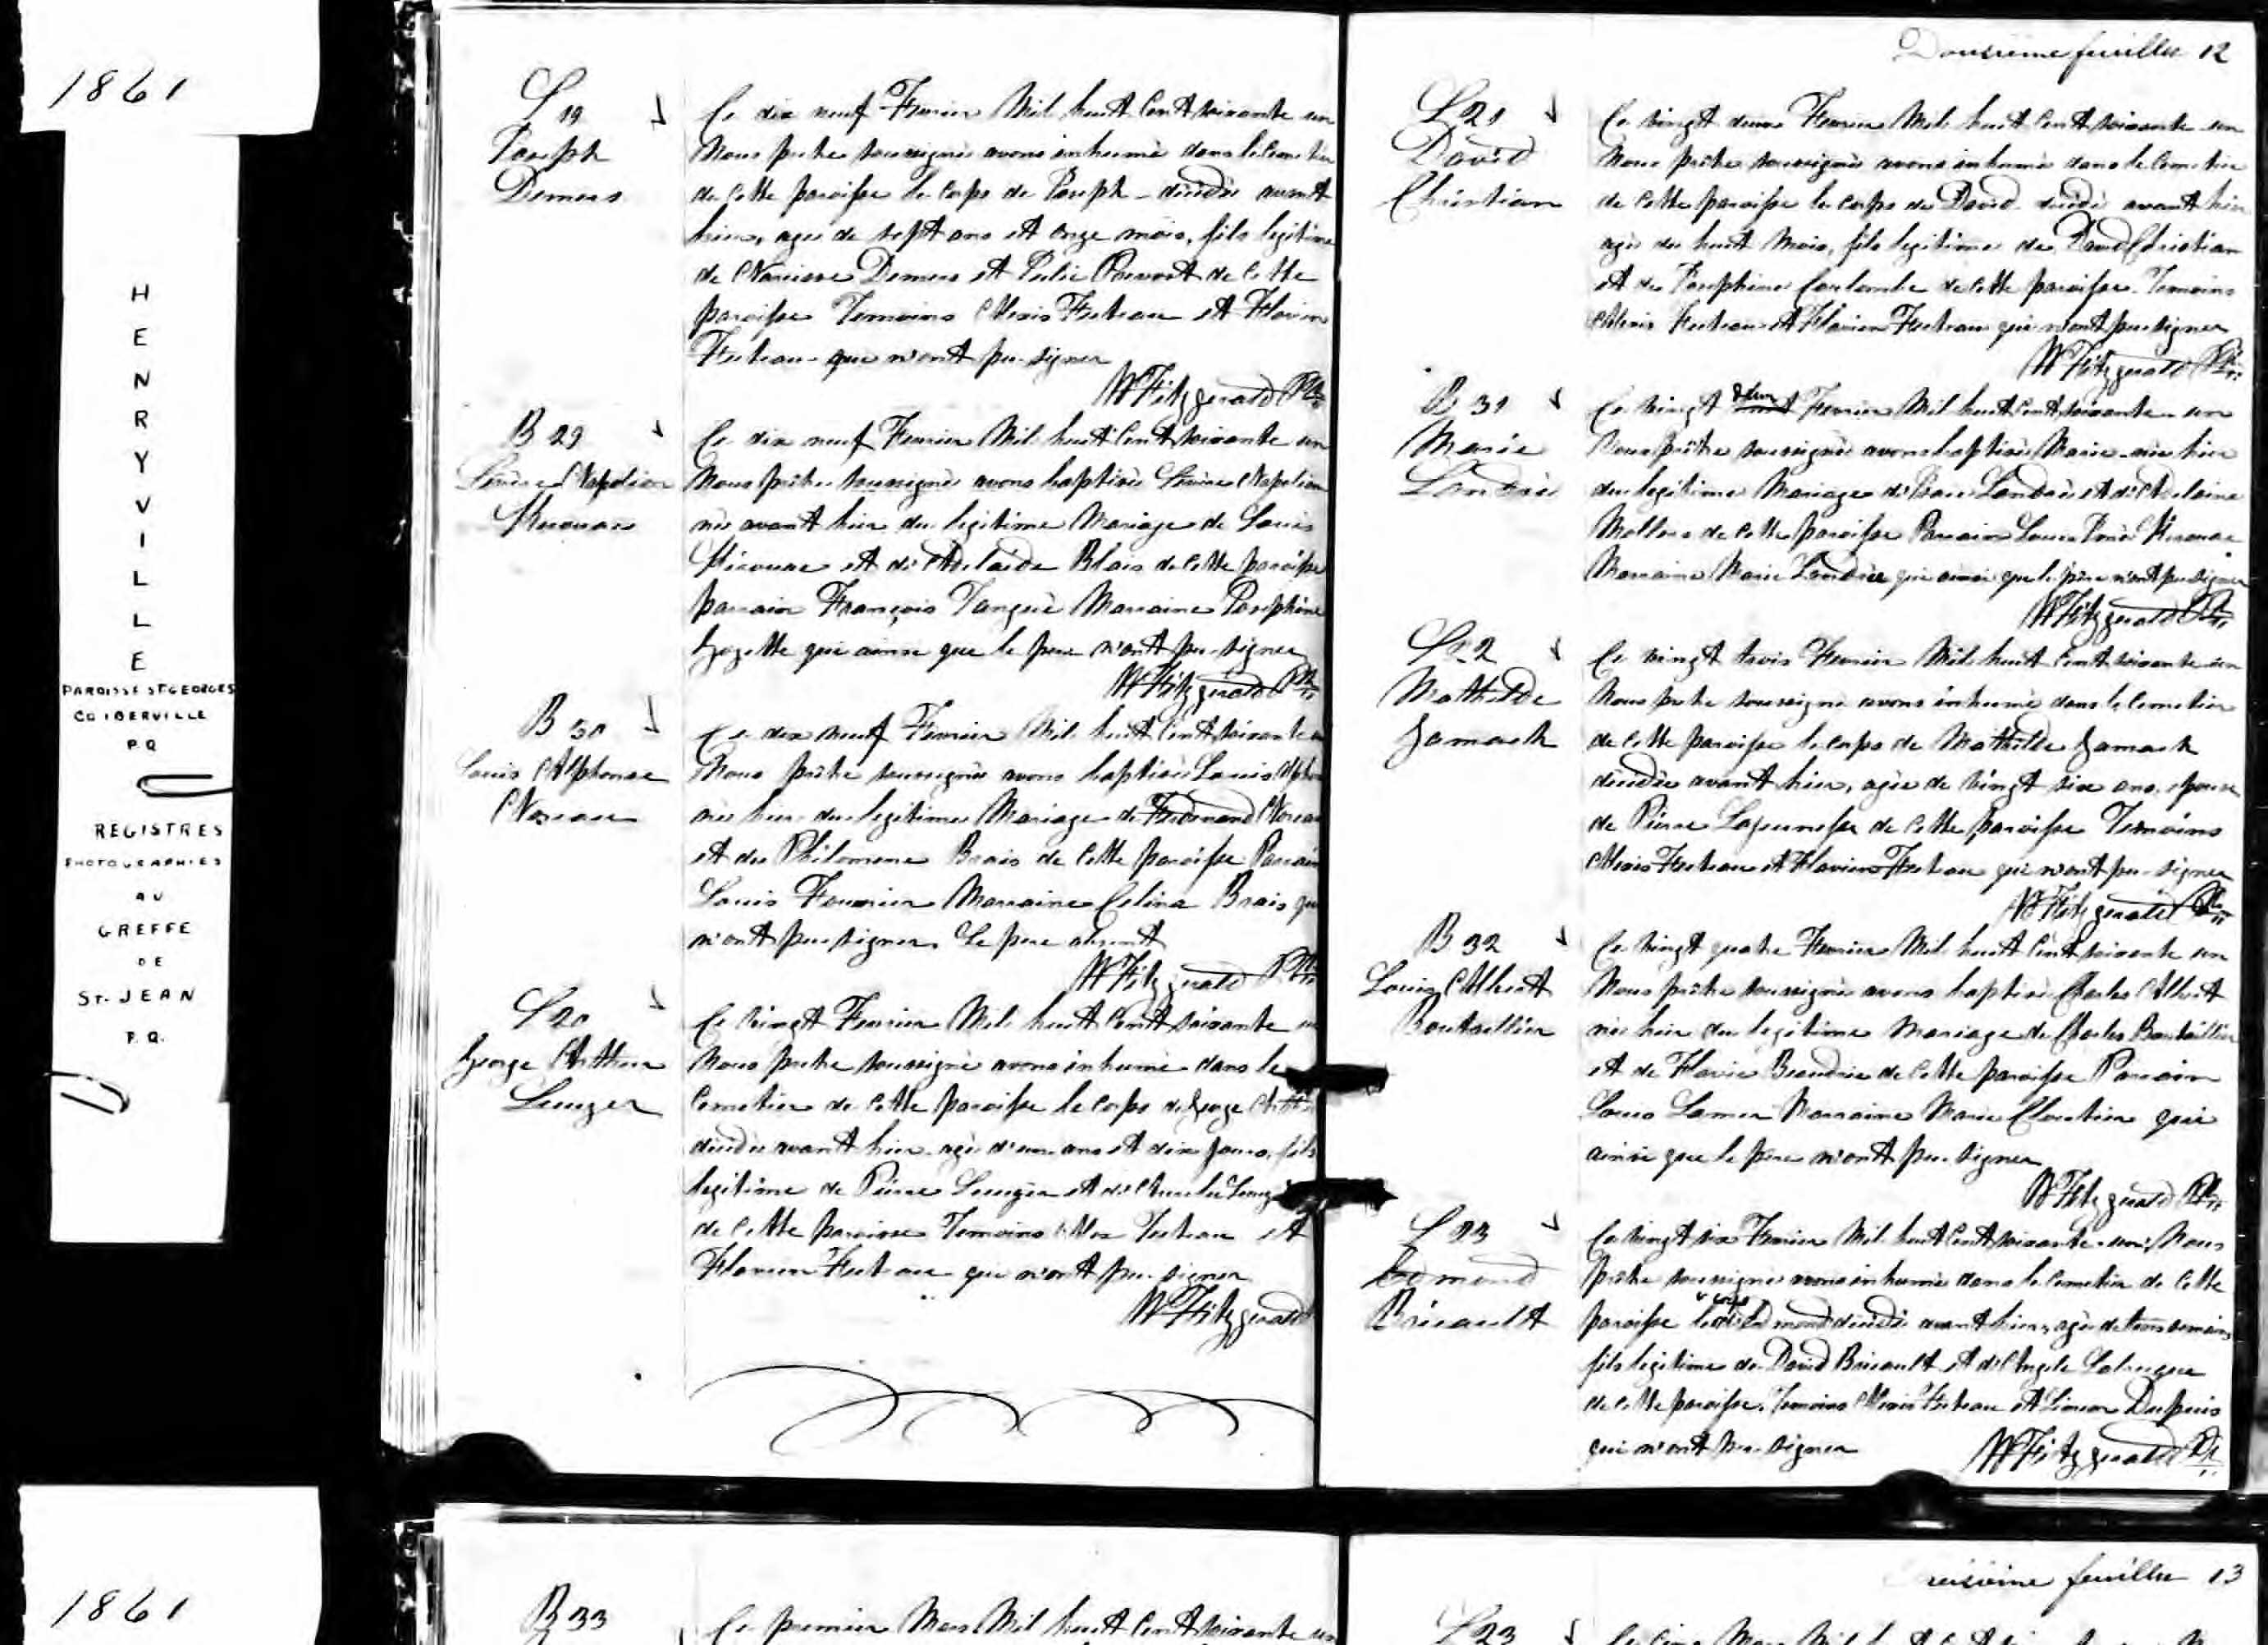 1861
HENRYVILLE
PAROISSE ST GEORGES
CO IBERVILLE
P Q
REGISTRES
PHOTOGRAPHIES
AU
GREFFE
DE
ST. JEAN
P. Q.
S 19
Joseph
Demers
Ce dix neuf Fevrier Mil huit Cent soixante un
Nous pretre soussigné avons inhumé dans le Cemetier
de Cette paroisse le Corps de Joseph décédé avant
hier, agé de sept ans et onze mois, fils legitime
de Narcisse Demers et Julie de Cette
paroisse Temoins Alexis Fecteau et Flavien
Fecteau qui n'ont pu signer
W Fitzgerald Ptr
B 29
Napoleon
Kirouac
Ce dix neuf Fevrier Mil huit Cent soixante un
Nous prêtre soussigné avons baptisé Napoleon
né avant hier du legitime Mariage de Louis
Kirouac et de Adelaide Blais de Cette paroisse
parrain François Tanguè Marraine Josephine
Gozette qui ainsi que le pere n'ont pu signer
W Fitzgerald Ptr
B 30
Louis Alphonse
Noreau
Ce dix neuf Fevrier Mil huit Cent soixante un
Nous prêtre soussigné avons baptisé Louis Alphonse
né hier du legitime Mariage de Ferdinand Noreau
et de Philomene Brais de Cette paroisse Parrain
Louis Fournier Marraine Celina Brais qui
n'ont pu signer. Le pere absent
W Fitzgerald Ptr
S 20
George Arthur
Ce vingt Fevrier Mil huit Cent soixante un
Nous pretre soussigné avons inhumé dans le
Cemetier de Cette paroisse le Corps de George Arthur
décédé avant hier agé d'un ans et dix jours, fils
legitime de Pierre et de
de Cette paroisse Temoins Alex Fecteau et
Flavien Fecteau qui n'ont pu signer
W Fitzgerald
Douzieme feuillet 12
S 21
David
Christian
Ce vingt deux Fevrier Mil huit Cent soixante un
Nous prêtre soussigné avons inhumé dans le Cemetier
de Cette paroisse le Corps de David décédé avant hier
agé de huit Mois, fils legitime de David Christian
et de Josephine Coulombe de Cette paroisse. Temoins
Alexis Fecteau et Flavien Fecteau qui n'ont pu signer
W Fitzgerald Ptr
B 31
Marie
Landrie
Ce vingt deux Fevrier Mil huit Cent soixante un
Nous prêtre soussigné avons baptisé Marie née hier
du legitime Mariage d'Isaac Landrie et de
de Cette paroisse Parrain Louis Kirouac
Marraine Marie Landrie qui ainsi que le père n'ont pu signer
W Fitzgerald Ptr
S 22
Mathilde
Gamach
Ce vingt trois Fevrier Mil huit Cent soixante un
Nous pretre soussigné avons inhumé dans le Cemetier
de Cette paroisse le Corps de Mathilde Gamach
décédée avant hier, agée de vingt six ans, epouse
de Pierre Lajeunesse de Cette paroisse Temoins
Alexis Fecteau et Flavien Fecteau qui n'ont pu signer
W Fitzgerald Ptr
B 32
Louis Albert
Boutaillier
Ce vingt quatre Fevrier Mil huit Cent soixante un
Nous prêtre soussigné avons baptisé Charles Albert
né hier du legitime Mariage de Charles Boutaillier
et de Flavie Beaudrie de Cette paroisse Parrain
Louis Lamer Marraine Marie Cloutier qui
ainsi que le père n'ont pu signer
W Fitzgerald Ptr
S 23
Edmond
Bricault
Ce vingt six Fevrier Mil huit Cent soixante un, Nous
prêtre soussigné avons inhumé dans le Cemetier de Cette
paroisse le corps d'Edmond décédé avant hier, agé de trois semaines
fils legitime de David Bricault et d'Angele
de Cette paroisse. Temoins Alexis Fecteau et Simeon Dupuis
qui n'ont pu signer W Fitzgerald Ptr
1861
B 33
Ce premier Mars Mil huit Cent soixante un
Treizieme feuillet 13
S 23